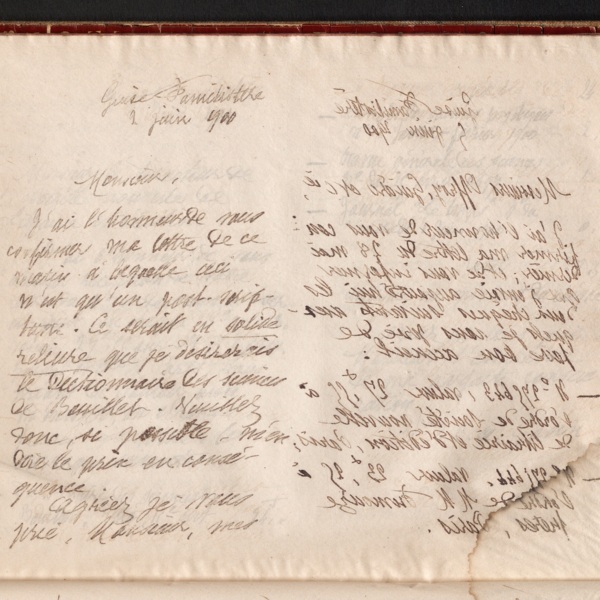 Guise Familistère
2 juin 1900
Monsieur,
J'ai l'honneur de vous
confirmer ma lettre de ce
matin à laquelle ceci
n'est qu'un post-scrip
tum. Ce serait en solide
reliure que je désirerais
le Dictionnaire des sciences
de Bouillet. Veuillez
donc, si possible, m'en
dire le prix en consé
quence.
Agréez, je vous
prie, Monsieur, mes
Guise Familistère
5 juin 1900
Messieurs Offroy, Guiard et Cie,
J'ai l'honneur de vous con
firmer ma lettre du 28 mai
dernier; et de vous informer
que j'envoie aujourd'hui les
deux chèques suivants aux
quels je vous prie de
faire bon accueil:
valeur 27f,55 à
l'ordre de Société nouvelle
de librairie et d'édition, Paris;
valeur
l'ordre de M. M.
frères, Paris.